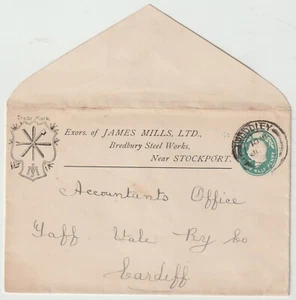 Trade Mark
Exors. of JAMES MILLS, LTD.,
Bredbury Steel Works,
Near STOCKPORT.
WOODLEY
Accountants Office
Taff Vale Ry Co
Cardiff